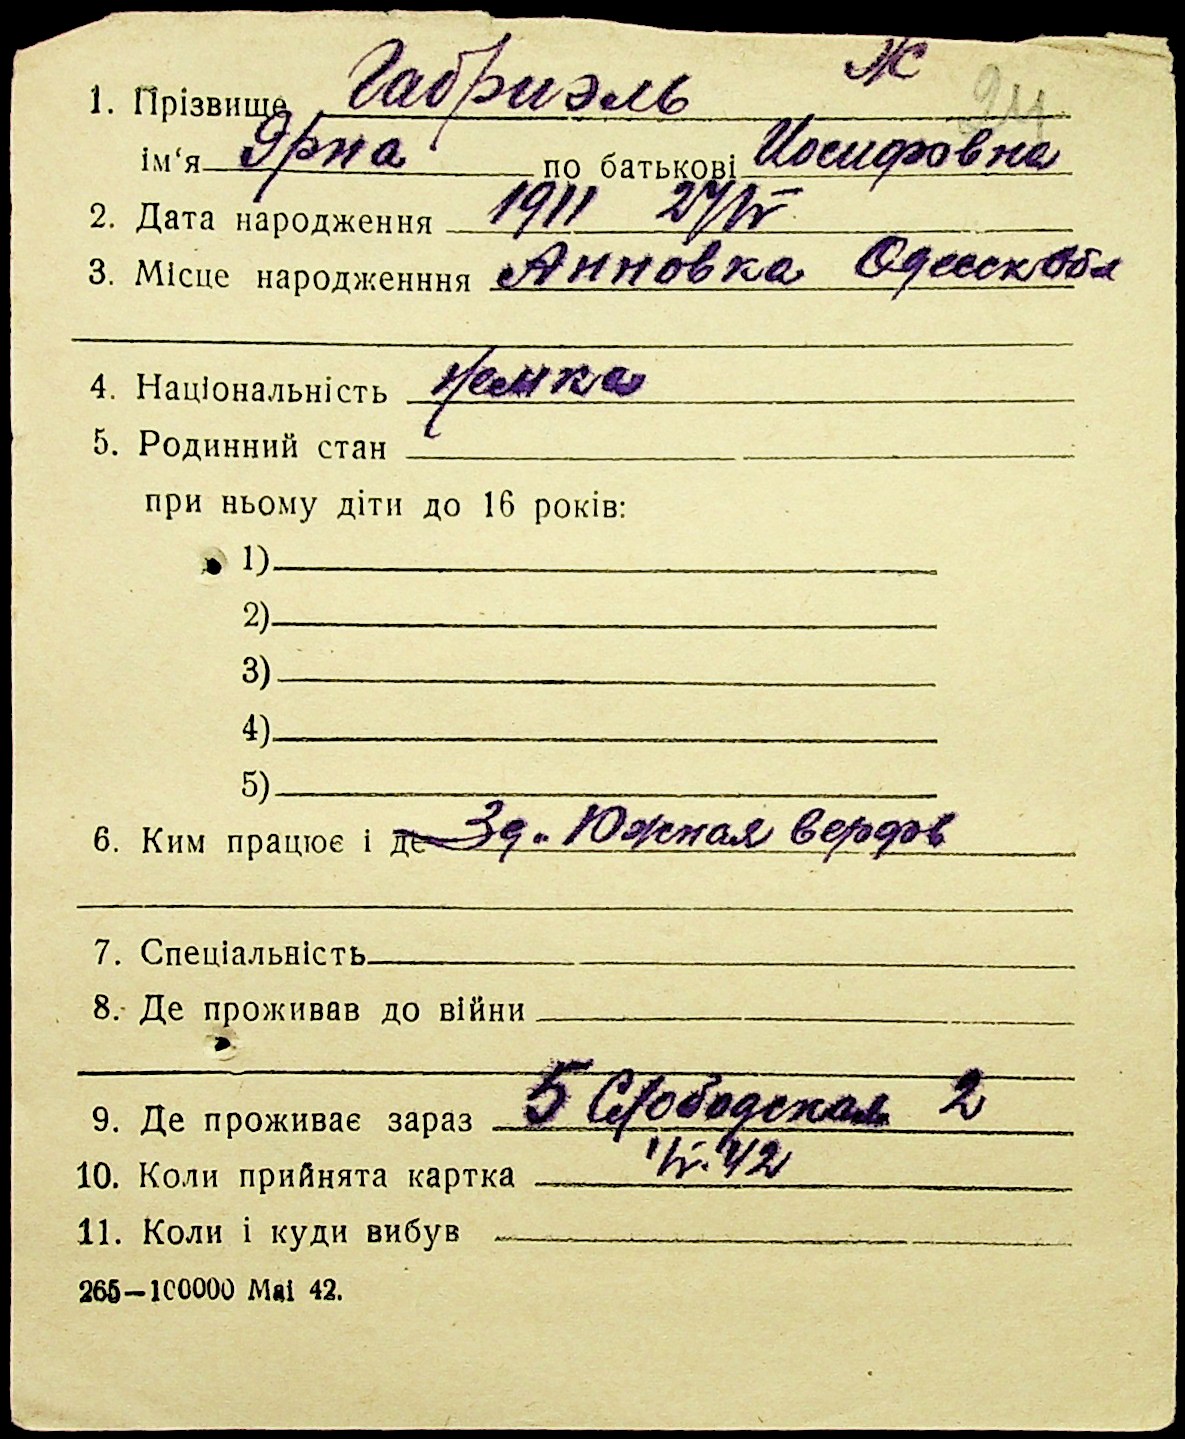 Ж
1. Прізвище Габриэль 24
ім'я Эрна по батькові Иосифовна
2. Дата народження 1911 27/IV
3. Місце народженння Анновка Одесск обл
4. Національність немка
5. Родинний стан
при ньому діти до 16 років:
1)
2)
3)
4)
5)
6. Ким працює і де Зд. Южная верфь
7. Спеціальність
8. Де проживав до війни
9. Де проживає зараз 5 Слободская 2
10. Коли прийнята картка 42
11. Коли і куди вибув
265—100000 Mai 42.